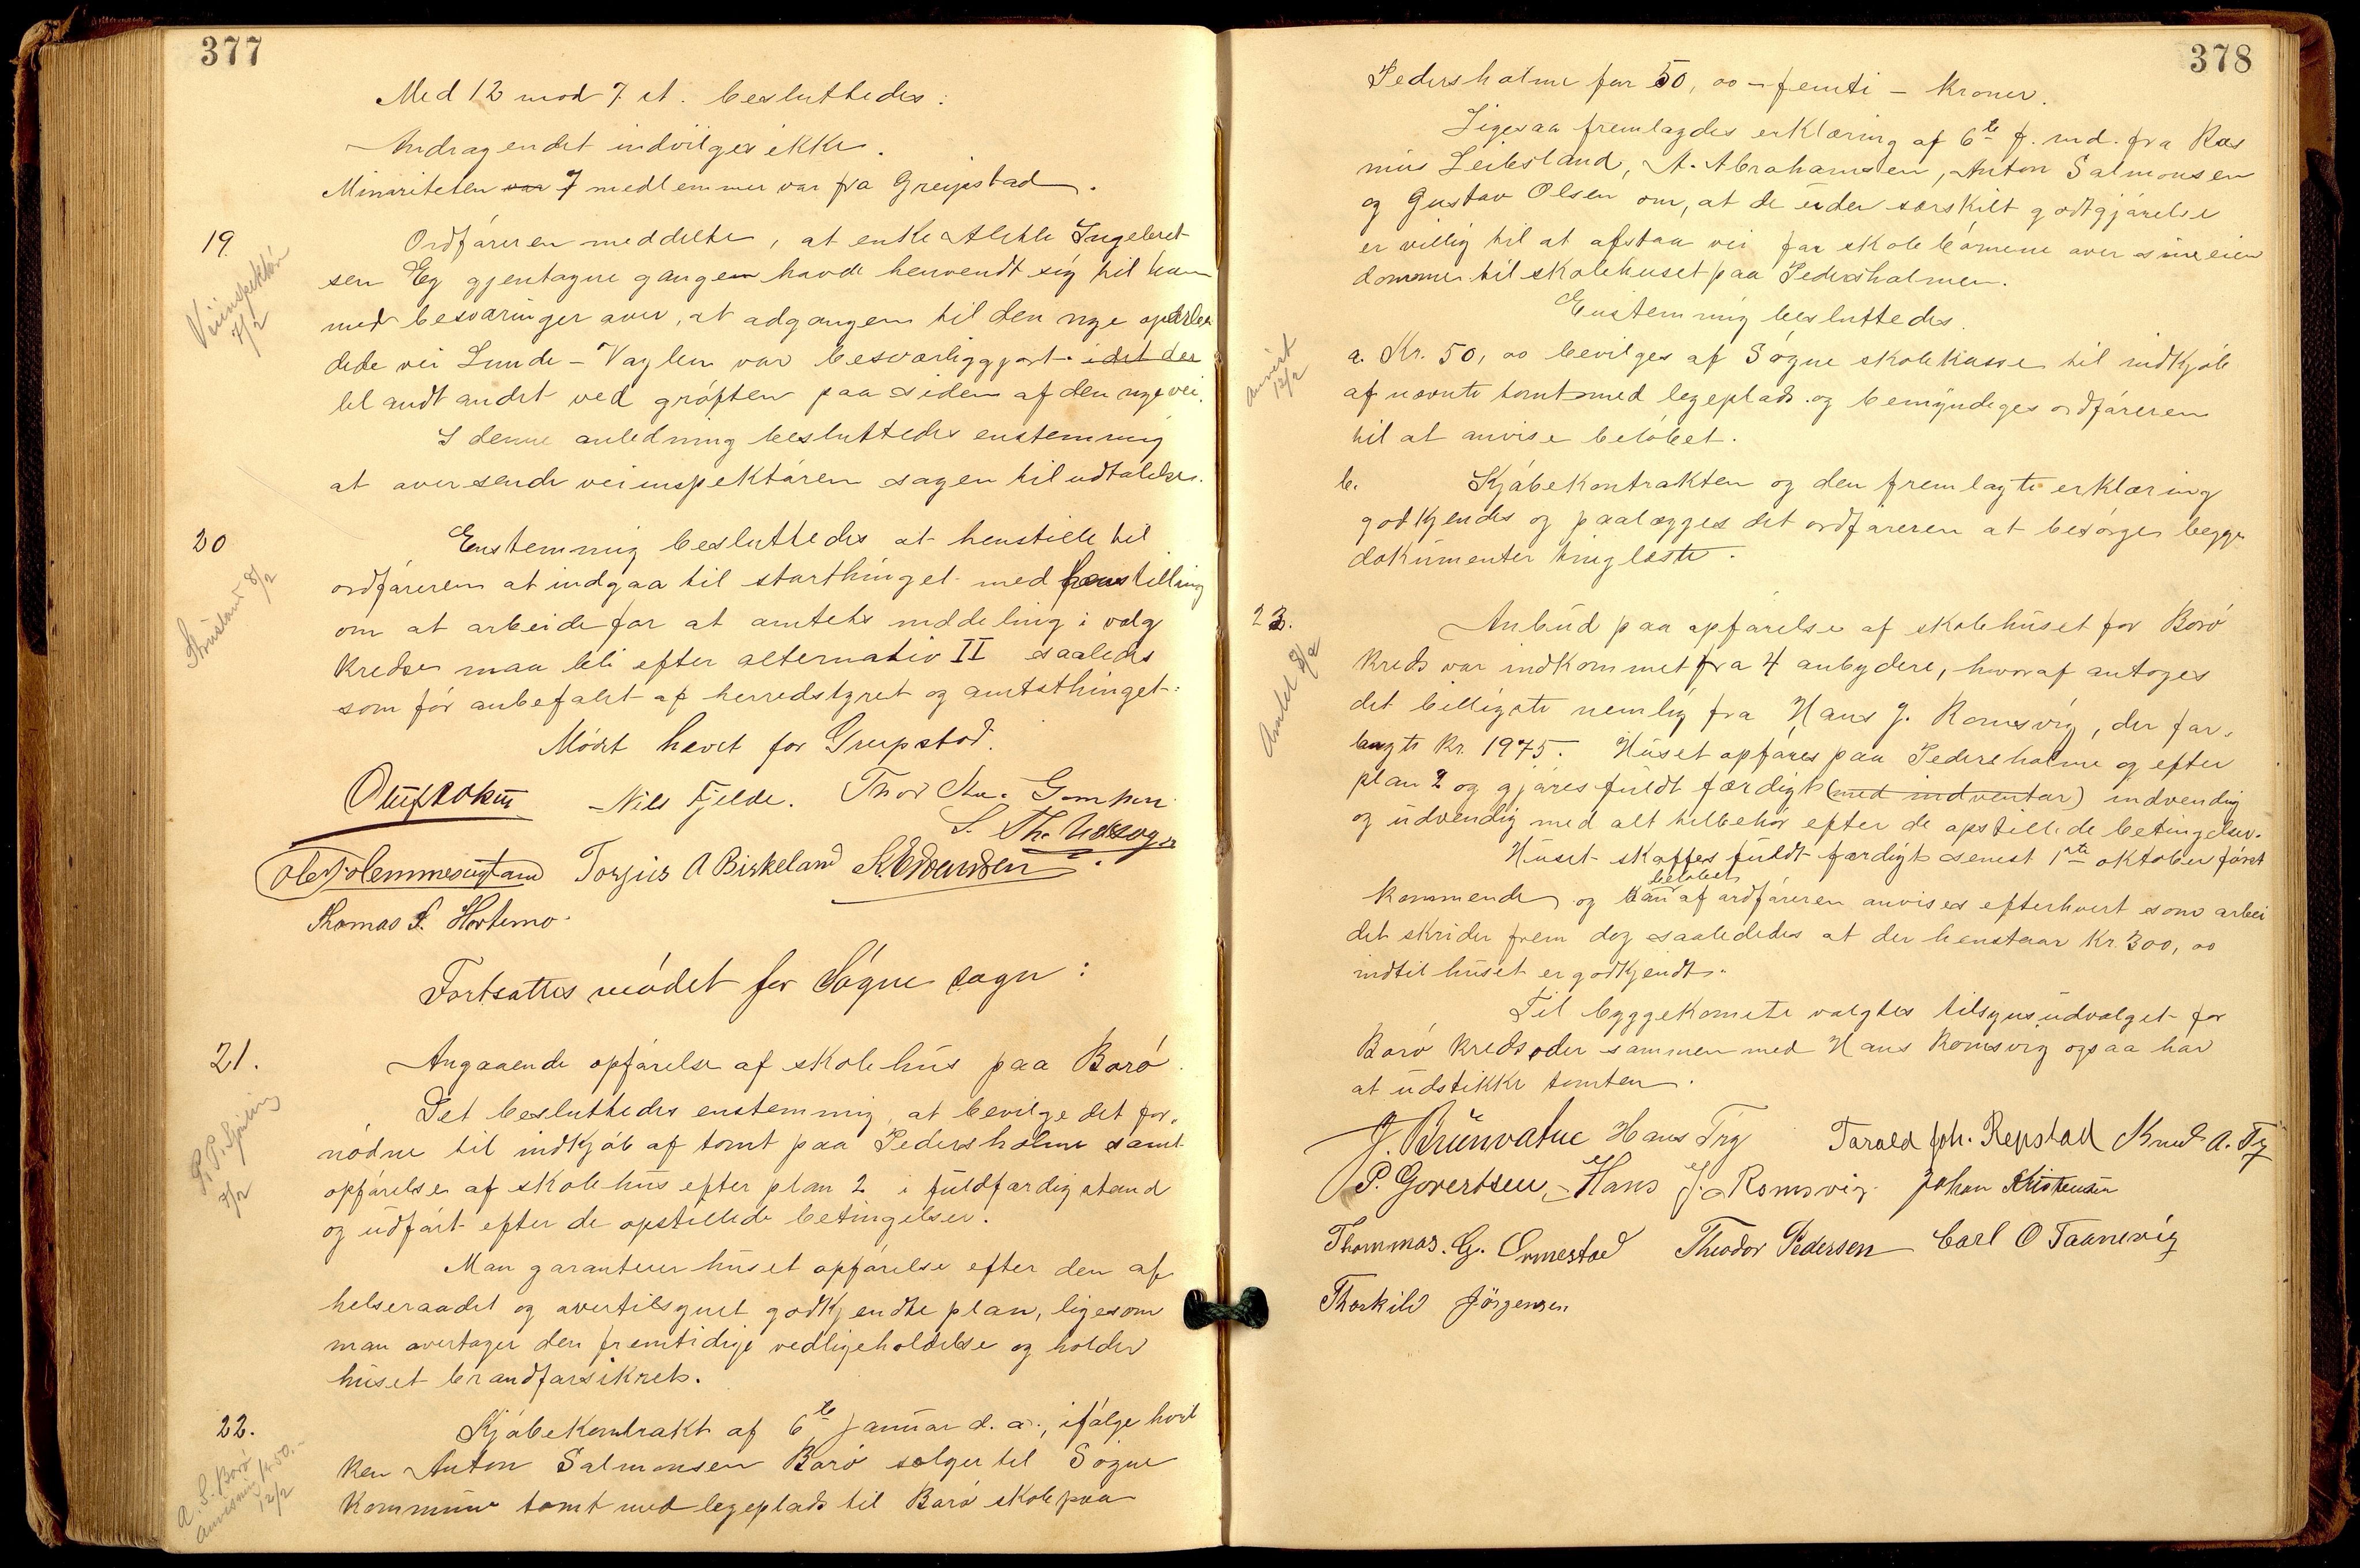 377
Med 12 mod 7 st. besluttedes:
Andragendet indvilges ikke.
Minoriteten var 7 medlemmer var fra Greipstad.
19.
Veiinspektör
7/2
Ordføreren meddelte, at enke Alethe Ingebret
sen Eg gjentagne gangen havde henvendt sig til ham
med besværinger over, at adgangen til den nye oparbei
dede vei Lunde - Vaglen var besværliggjort idet der
blandt andet ved grøften paa siden af den nye vei.
I denne anledning besluttedes enstemmig
at oversende veiinspektøren sagen til udtalelse.
20
8/2
Enstemmig besluttedes at henstille til
ordføreren at indgaa til storthinget med henstilling
om at arbeide for at amtets inddeling i valg
kredse maa bli efter alternativ II saaledes
som før anbefalet af herredstyret og amtsthinget.
Mødet hævet for Greipstad.
Nils Fjelde. Thor
S. Th.
Torjus A Birkeland
Thomas S. Hortemo.
Fortsattes mødet for Søgne sogn:
21.
7/2
Angaaende opførelse af skolehus paa Borø.
Det besluttedes enstemmig, at bevilge det for-
nødne til indkjøb af tomt paa Pedersholme samt
opførelse af skolehus efter plan 2 i fuldfærdig stand
og udført efter de opstillede betingelser.
Man garanterer huset opførelse efter den af
helseraadet og overtilsynet godkjendte plan, ligesom
man overtager den fremtidige vedligeholdelse og holder
huset brandforsikret.
22.
A. S. Borø
anvisning kr 50.-
12/2
Kjøbekontrakt af 6te januar d. a., ifølge hvil
ken Anton Salmonsen Borø sælger til Søgne
kommune tomt med legeplads til Borø skole paa
378
Pedersholme for 50,00 - femti - kroner.
Ligesaa fremlagdes erklæring af 6te f. md. fra Ras
mus Leibsland, A. Abrahamsen, Anton Salmonsen
og Gustav Olsen om, at de uden særskilt godtgjørelse
er villig til at afstaa vei for skolebørnene over sine eien
domme til skolehuset paa Pedersholmen.
Enstemmig besluttedes.
Anvist
12/2
a. Kr. 50,00 bevilges af Søgne skolekasse til indkjøb
af nævnte tomt med legeplads og bemyndiges ordføreren
til at anvise beløbet.
b. Kjøbekontrakten og den fremlagte erklæring
godkjendes og paalægges det ordføreren at besørges begge
dokumenter tinglæste.
23.
Anbud paa opførelse af skolehuset for Borø
kreds var indkommet fra 4 anbydere, hvoraf antoges
det billigste nemlig fra Hans J. Romsvig, der for-
langte kr. 1975. Huset opføres paa Pedersholme og efter
plan 2 og gjøres fuldt færdigt (med indventar) indvendig
og udvendig med alt tilbehør efter de opstillede betingelser.
Huset skaffes fuldt færdigt senest 1ste oktober først
kommende og beløbet kan af ordføreren anvises efterhvert som arbei
det skrider frem dog saaledes at der henstaar kr. 300,00
indtil huset er godkjendt.
Til byggekomite valgtes tilsynsudvalget for
Borø kreds, der sammen med Hans Romsvig ogsaa har
at udstikke tomten.
J. Brunvatne Hans Try Tarald Joh. Repstad Knud A. Try
P. Govertsen, Hans J. Romsvig Johan Kristensen
Thommas. G. Ormestad Theodor Pedersen Carl O Taanevig
Thorkild Jörgensen